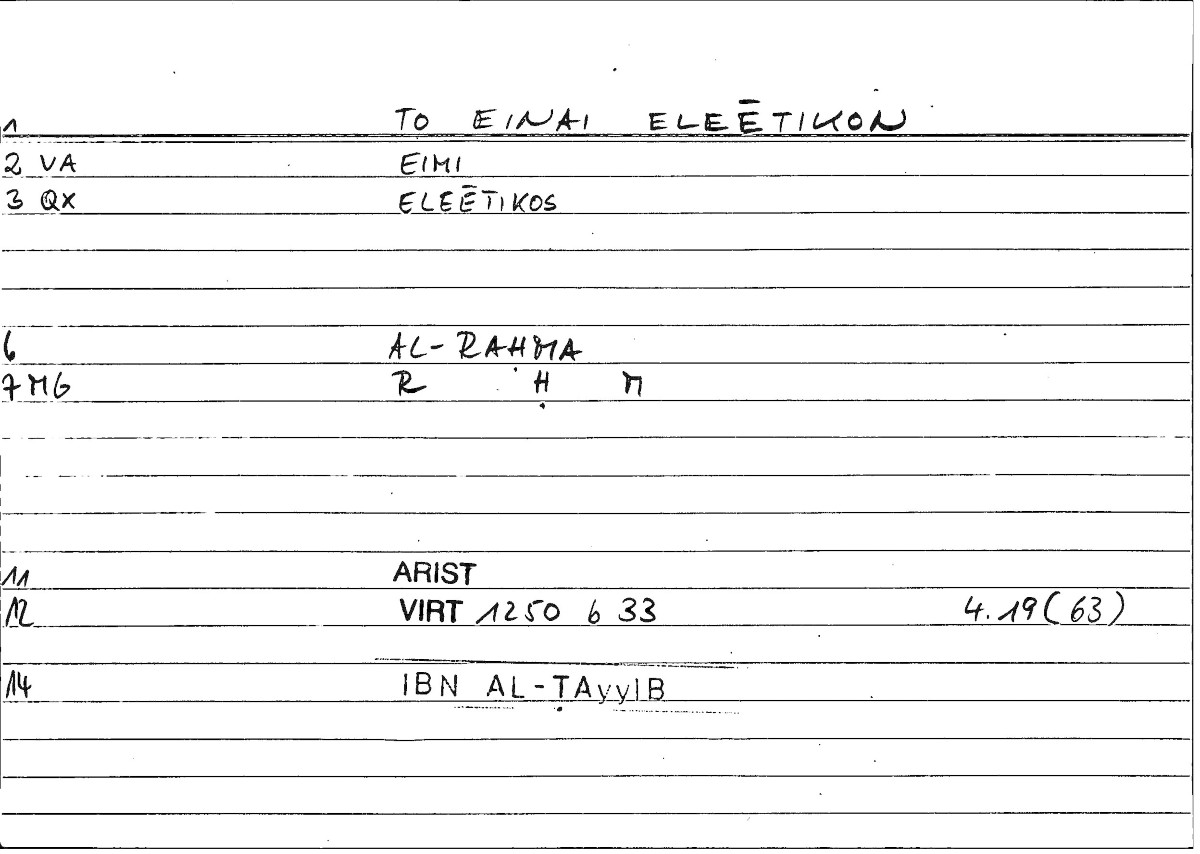 1 TO EINAI ELEĒTIKON
2 VA EIMI
3 QX ELEĒTIKOS
6 AL-RAHMA
7 MG R Ḥ M
11 ARIST
12 VIRT 1250 b 33 4.19(63)
14 IBN AL-ṬAyyIB